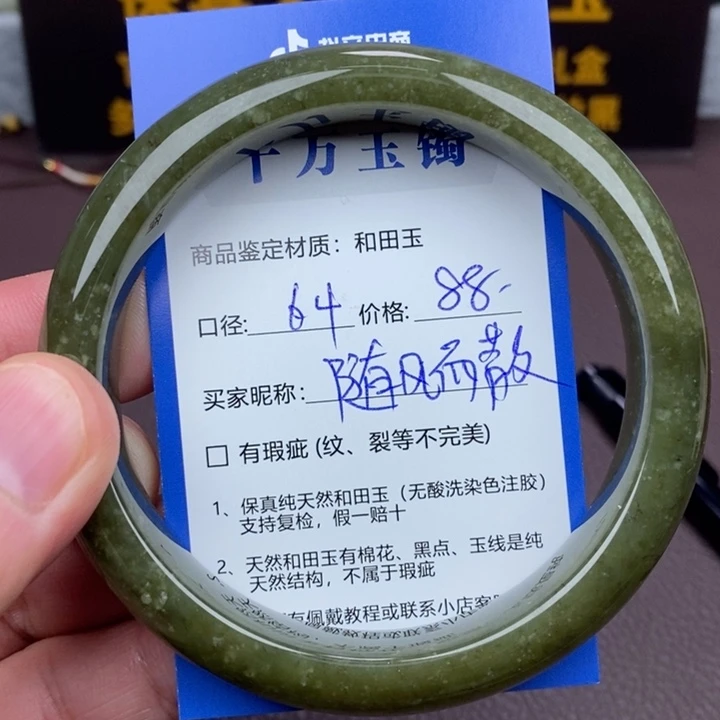 抖音电商
平方玉镯
商品鉴定材质：和田玉
口径: 64 价格: 88.
买家昵称： 随风而散
□ 有瑕疵 (纹、裂等不完美)
1、保真纯天然和田玉（无酸洗染色注胶）
支持复检，假一赔十
2、天然和田玉有棉花、黑点、玉线是纯
天然结构，不属于瑕疵
有佩戴教程或联系小店客